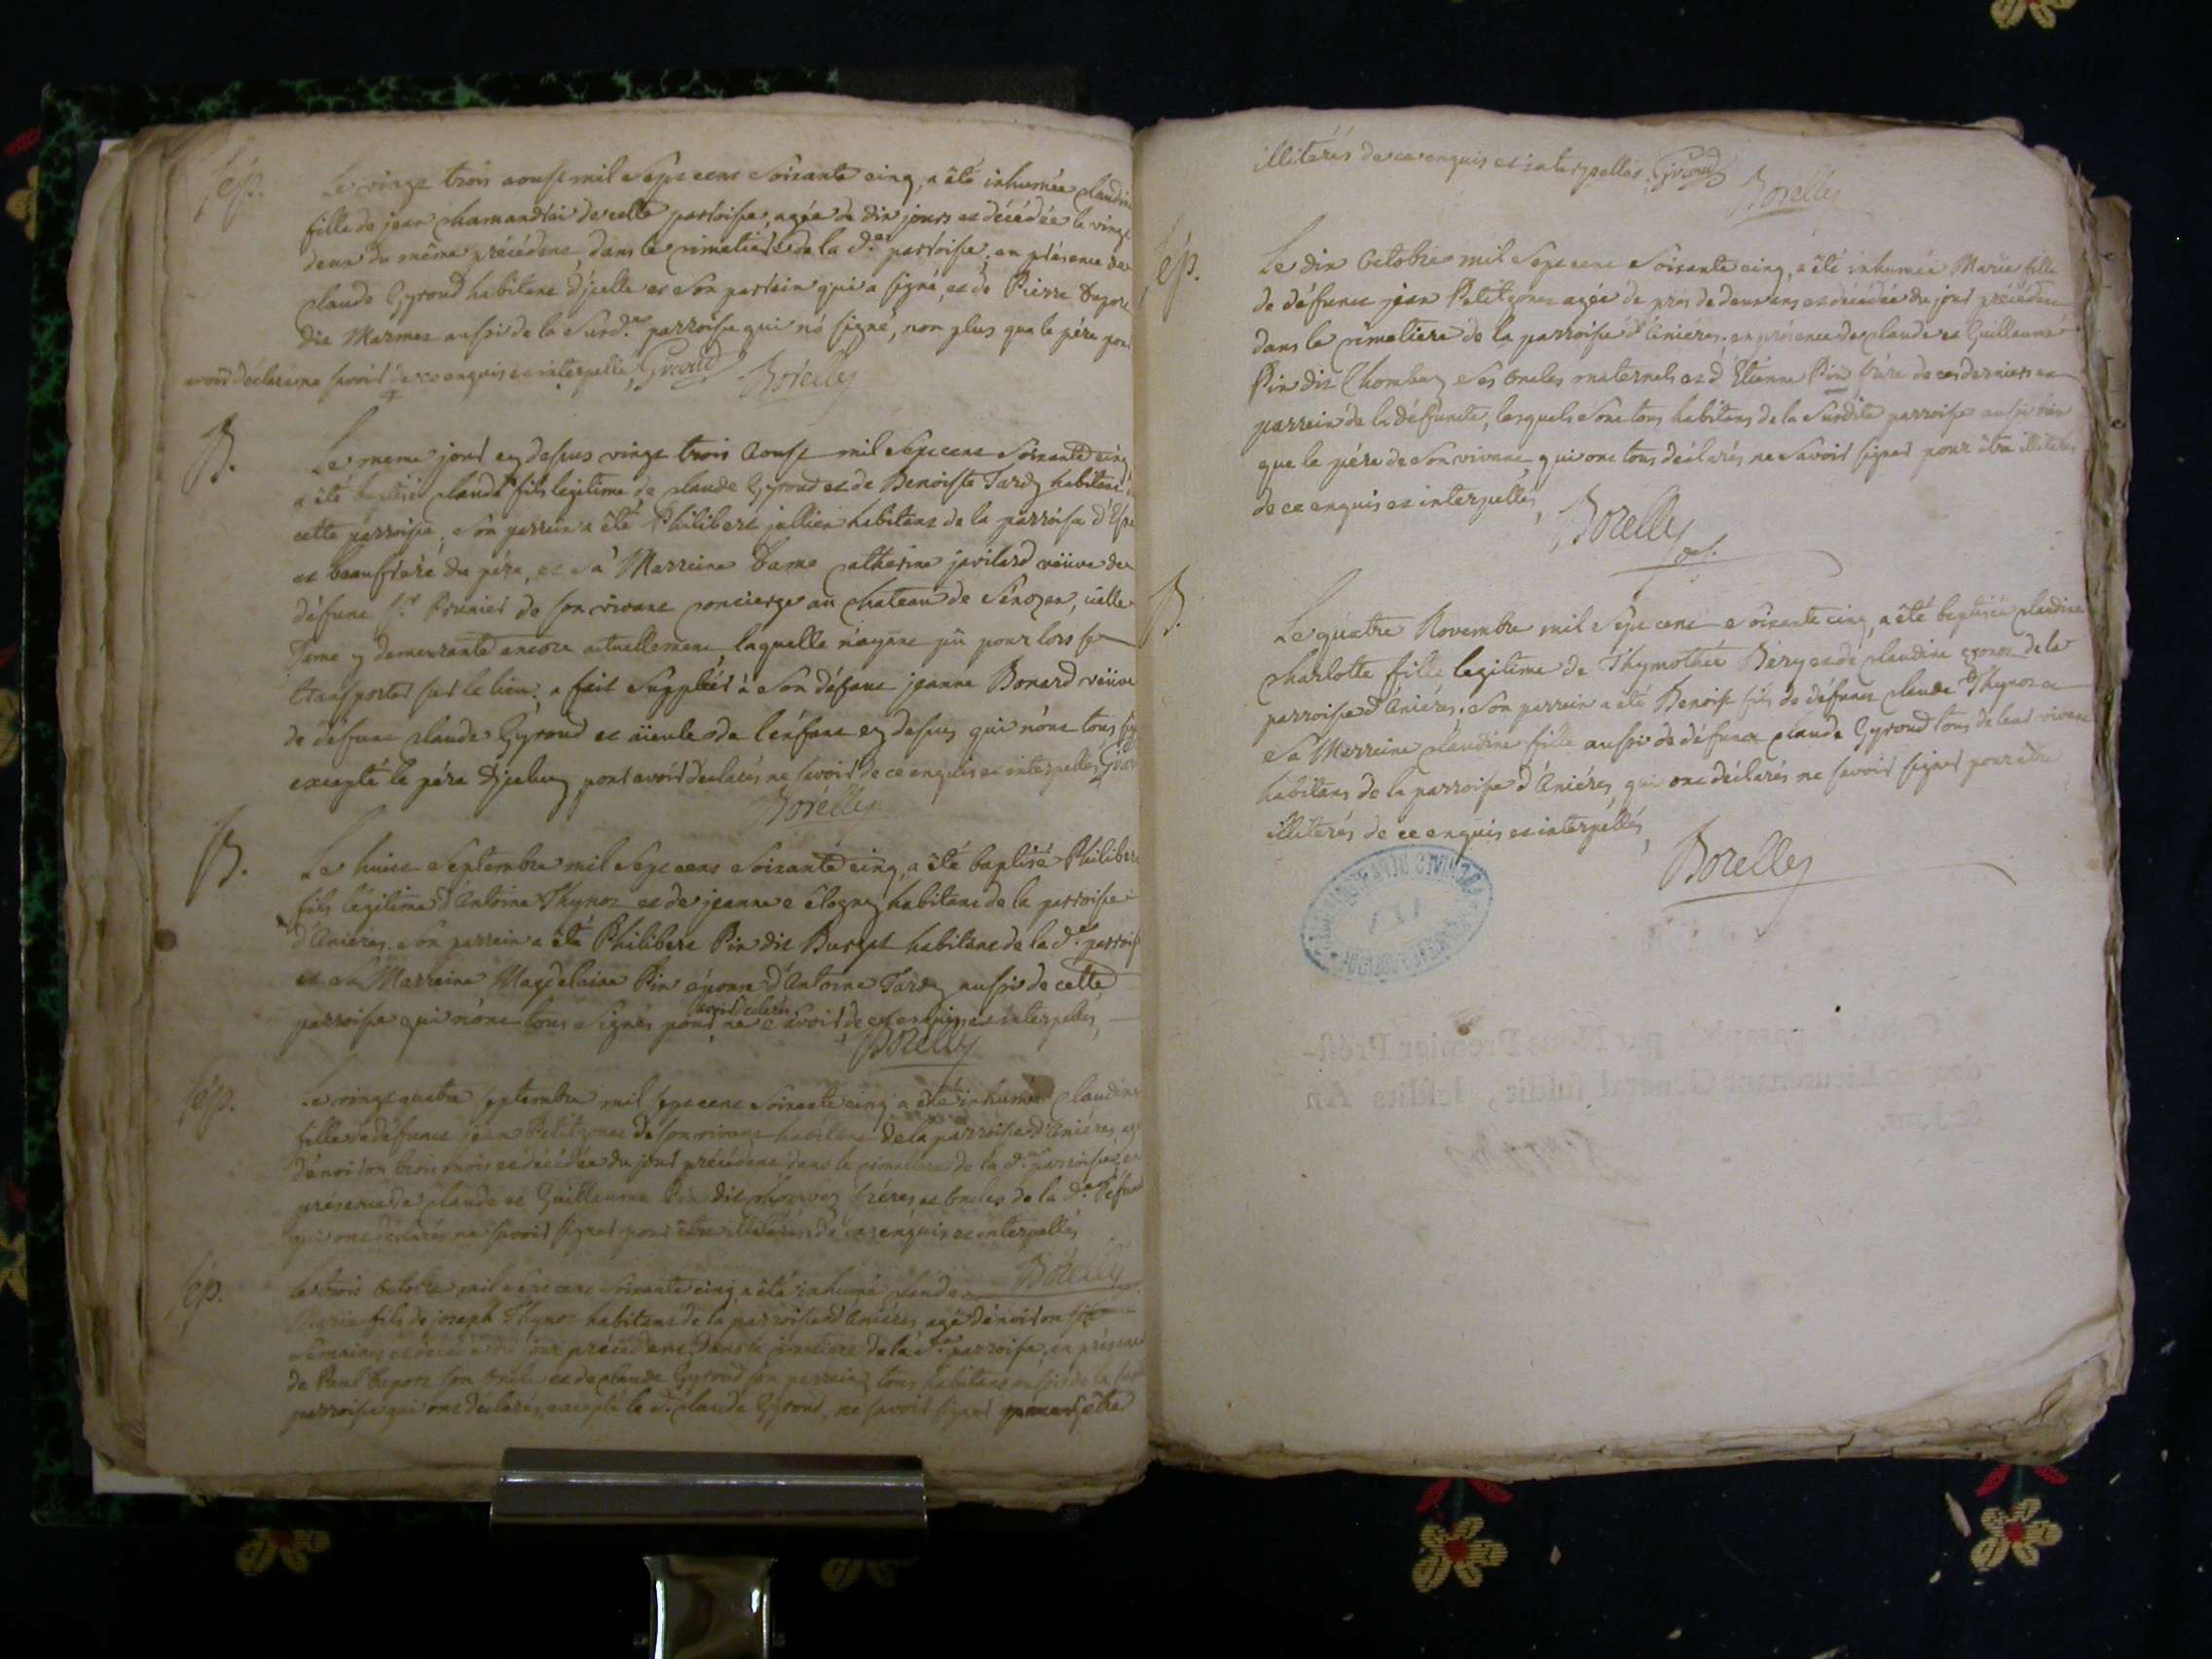 Sép.
Le vingt trois aoust mil sept cent soixante cinq, a été inhumée claudine
fille de jean chamandrai de cette parroisse, agée de dix jours et décédée le vingt
deux du même précédent, dans le cimetière de la d.e parroisse, en présence de
claude Gyroud habitant d'jcelle et son parrain qui a signé, et de Pierre Duport
dit Marmet aussi de la susd.e parroisse qui n'a signé, non plus que le père pour
avoir déclaré ne savoir de ce enquis et interpellé, Giroud
Borelly
B.
Le meme jour cy dessus vingt trois Aoust mil sept cent soixante cinq
a été baptisé claude fils legitime de claude Gyroud et de Benoiste Tardy habitant
cette parroisse, son parrain a été Philibert jullien habitant de la parroisse
et beaufrère du père, et sa Marreine Dame catherine javilard veüve de
défunt S.r Prunier de son vivant concierge au chateau de Sénozan, icelle
Dame y demeurante encore actuellement laquelle n'ayant pû pour lors se
transporter sur le lieu, a fait suppléer à son défaut jeanne Bonard veüve
de défunt claude Gyroud et aïeule de l'enfant cy dessus qui n'ont tous
excepté le père d'jceluy pour avoir declarés ne savoir de ce enquis et interpellés,
Borelly
B.
Le huit Septembre mil sept cent soixante cinq, a été baptisé Philibert
fils légitime d'Antoine Thynot et de jeanne habitant de la parroisse
d'Aniéres, son parrain a été Philibert Pin dit Burget habitant de la d.e parroisse
et sa Marraine Magdelaine Pin épouse d'Antoine Tardy aussi de cette
parroisse qui n'ont tous signés pour avoir declarés ne savoir, de ce enquis et interpellés,
Borelly
Sép.
Le vingt quatre septembre mil sept cent soixante cinq, a été inhumée claudine
fille de défunt jean Petitgonet de son vivant habitant de la parroisse d'Aniéres, agée
d'environ trois mois et décédée du jour précédent dans le cimetière de la d.e parroisse, en
présence de claude et Guillaume Pin dit chombey frères et oncles de la d.e défunte
qui ont déclarés ne savoir signer pour être illiterés de ce enquis et interpellés
Borelly
Sép.
Le trois octobre mil sept cent soixante cinq, a été inhumé claude
Marie fils de joseph Thynot habitant de la parroisse d'Aniéres, agé d'environ six
semaines et décédé du jour précédent, dans le cimetiere de la d.e parroisse, en présence
de Paul Duport son oncle et de claude Gyroud son parrain tous habitans aussi de la
parroisse qui ont déclarés, excepté le d. claude Gyroud, ne savoir signer pour être
illiterés de ce enquis et interpellés, Giroud
Borelly
Sép.
Le dix Octobre mil sept cent soixante cinq, a été inhumée Marie fille
de défunt jean Petitgonet agée de près de deux ans et décédée du jour précédent
dans le cimetiere de la parroisse d'Aniéres, en présence de claude et Guillaume
Pin dit Chombey ses oncles maternels et d'Etienne Pin frère de ces derniers et
parrein de la défuncte, lesquels sont tous habitans de la susdite parroisse aussi bien
que le père de son vivant, qui ont tous déclarés ne savoir signer pour être illiterés
de ce enquis et interpellés,
Borelly
B.
Le quatre Novembre mil sept cent soixante cinq, a été baptisée claudine
charlotte fille legitime de Thymothée Bery et de claudine de la
parroisse d'Aniéres, son parrein a été Benoist fils de défunt claude Thynot et
sa Marreine claudine fille aussi de défunt claude Gyroud tous de leur vivant
habitans de la parroisse d'Aniéres, qui ont déclarés ne savoir signer pour être
illiterés de ce enquis et interpellés,
Borelly